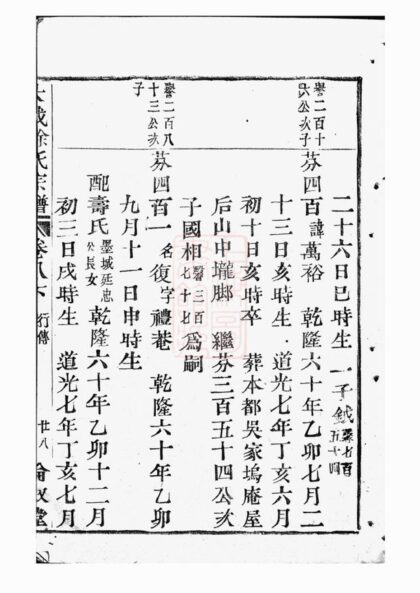 二十六日巳時生 一子鉞
譽二百十六公次子 芬四百 諱萬裕 乾隆六十年乙卯七月二
十三日亥時生 道光七年丁亥六月
初十日亥時卒 葬本都吳家塢庵屋
后山中壠脚 繼芬三百五十四公次
子國相 譽三百七十七 爲嗣
譽二百八十三公次子 芬四百一 名復字禮菴 乾隆六十年乙卯
九月十一日申時生
配壽氏 墨城廷忠公長女 乾隆六十年乙卯十二月
初三日戌時生 道光七年丁亥七月
徐氏宗譜 卷八下 行傳 廿八 倫敘堂